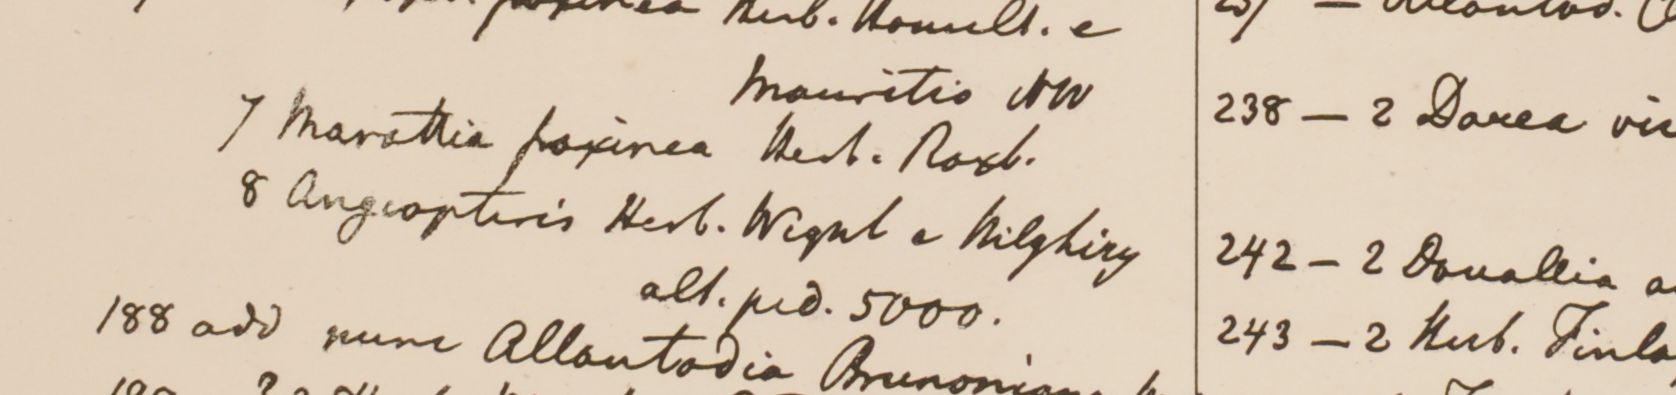 fraxinea Herb. Hamilt. e
Mauritio NW
7 Marattia fraxinea Herb. Roxb.
8 Angiopteris Herb. Wight e Nilghiry
alt. ped. 5000.
188 add nunc Allantodia Brunoniana
Allantod.
238 — 2 Darea
242 — 2 Davallia
243 — 2 Herb. Finla